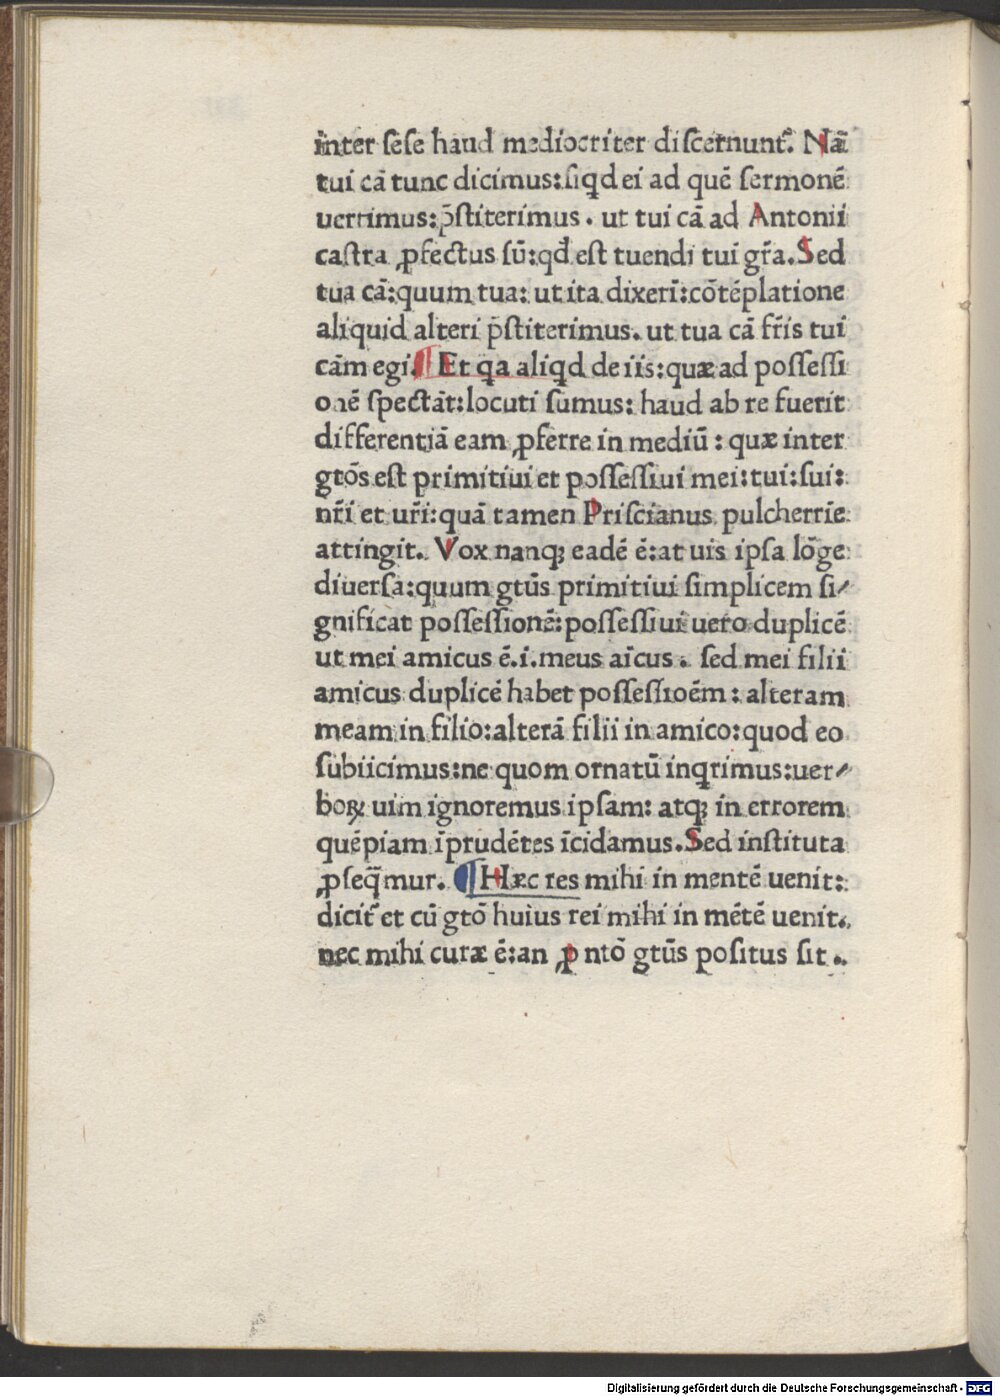 inter sese haud mediocriter discernunt᷑. Nã
tui cã tunc dicimus: siqd ei ad quẽ sermonẽ
uertimus: p̃stiterimus. ut tui cã ad Antonii
castra ꝓfectus sũ: qđ est tuendi tui gr̃a. Sed
tua cã: quum tua: ut ita dixerĩ: cõtẽplatione
aliquid alteri p̃stiterimus. ut tua cã fr̃is tui
cãm egi. ¶ Et qa aliqd de iis: quæ ad possessi
onẽ spectãt: locuti sumus: haud ab re fuerit
differentiã eam ꝓferre in mediũ: quæ inter
gtõs est primitiui et possessiui mei: tui: sui:
nr̃i et ur̃i: quã tamen Priscianus pulcherrĩe
attingit. Vox nanqꝫ eadẽ ẽ: at uis ipsa lõge
diuersa: quum gtũs primitiui simplicem si⸗
gnificat possessionẽ: possessiui uero duplicẽ
ut mei amicus ẽ .i. meus aĩcus. sed mei filii
amicus duplicẽ habet possessioẽm: alteram
meam in filio: alterã filii in amico: quod eo
subiicimus: ne quom ornatũ inqrimus: uer⸗
boꝝ uim ignoremus ipsam: atqꝫ in errorem
quẽpiam ĩprudẽtes ĩcidamus. Sed instituta
ꝓseq̃mur. ¶ Hæc res mihi in mentẽ uenit:
dicit᷑ et cũ gtõ huius rei mihi in mẽtẽ uenit.
nec mihi curæ ẽ: an ꝓ ntõ gtũs positus sit.
Digitalisierung gefördert durch die Deutsche Forschungsgemeinschaft - DFG